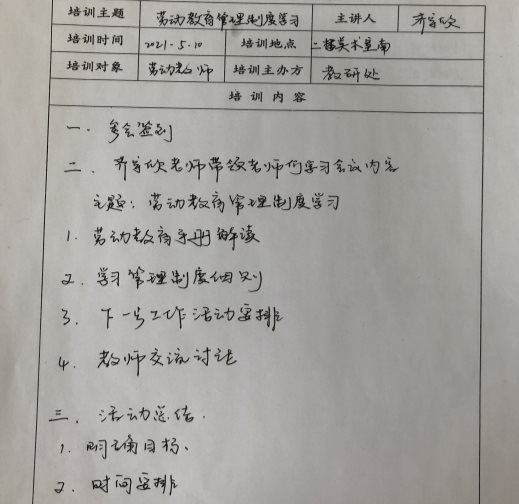 培训主题 劳动教育管理制度学习 主讲人 齐
培训时间 2021-5.10 培训地点 二楼美术室南
培训对象 劳动教师 培训主办方 教研处
培训内容
一. 参会签到
二. 齐 老师带领老师们学习会议内容
主题: 劳动教育管理制度学习
1. 劳动教育手册解读
2. 学习管理制度细则
3. 下一步工作活动安排
4. 教师交流讨论
三. 活动总结.
1. 明确目标、
2. 时间安排